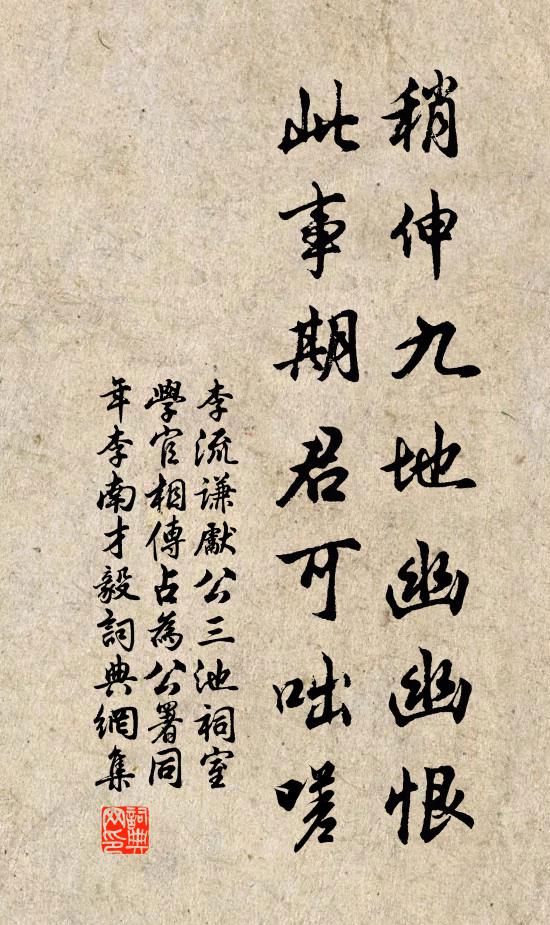 稍伸九地幽幽恨
此事期君可咄嗟
李流謙獻公三池祠室
學官相傳占為公署同
年李南才毅詞典網集
詞典網印